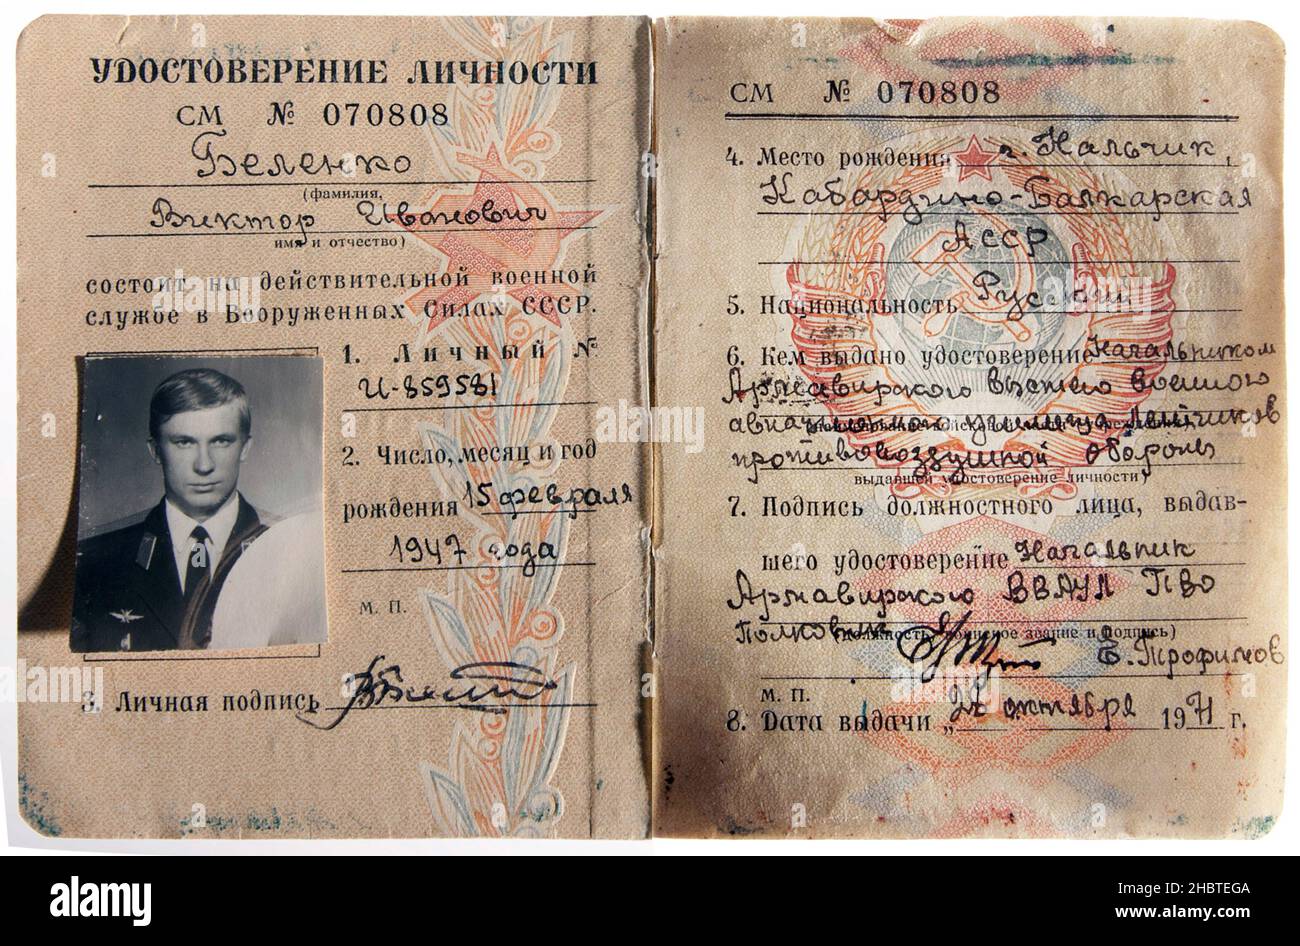 УДОСТОВЕРЕНИЕ ЛИЧНОСТИ
СМ № 070808
Беленко
(фамилия,
Виктор Иванович
имя и отчество)
состоит на действительной военной
службе в Вооруженных Силах СССР.
1. Личный №
И-859581
2. Число, месяц и год
рождения 15 февраля
1947 года
М. П.
3. Личная подпись
СМ № 070808
4. Место рождения г. Нальчик,
Кабардино-Балкарская
АССР
5. Национальность Русский
6. Кем выдано удостоверение Начальником
Армавирского высшего военного
авиационного училища летчиков
противовоздушной обороны
выдавшей удостоверение личности)
7. Подпись должностного лица, выдав-
шего удостоверение Начальник
Армавирского ВВАУЛ ПВО
Полковник Е. Трофимов
(должность, воинское звание и подпись)
М. П.
8. Дата выдачи „ октября 1971 г.
alamy
Image ID: 2HBTEGA
www.alamy.com